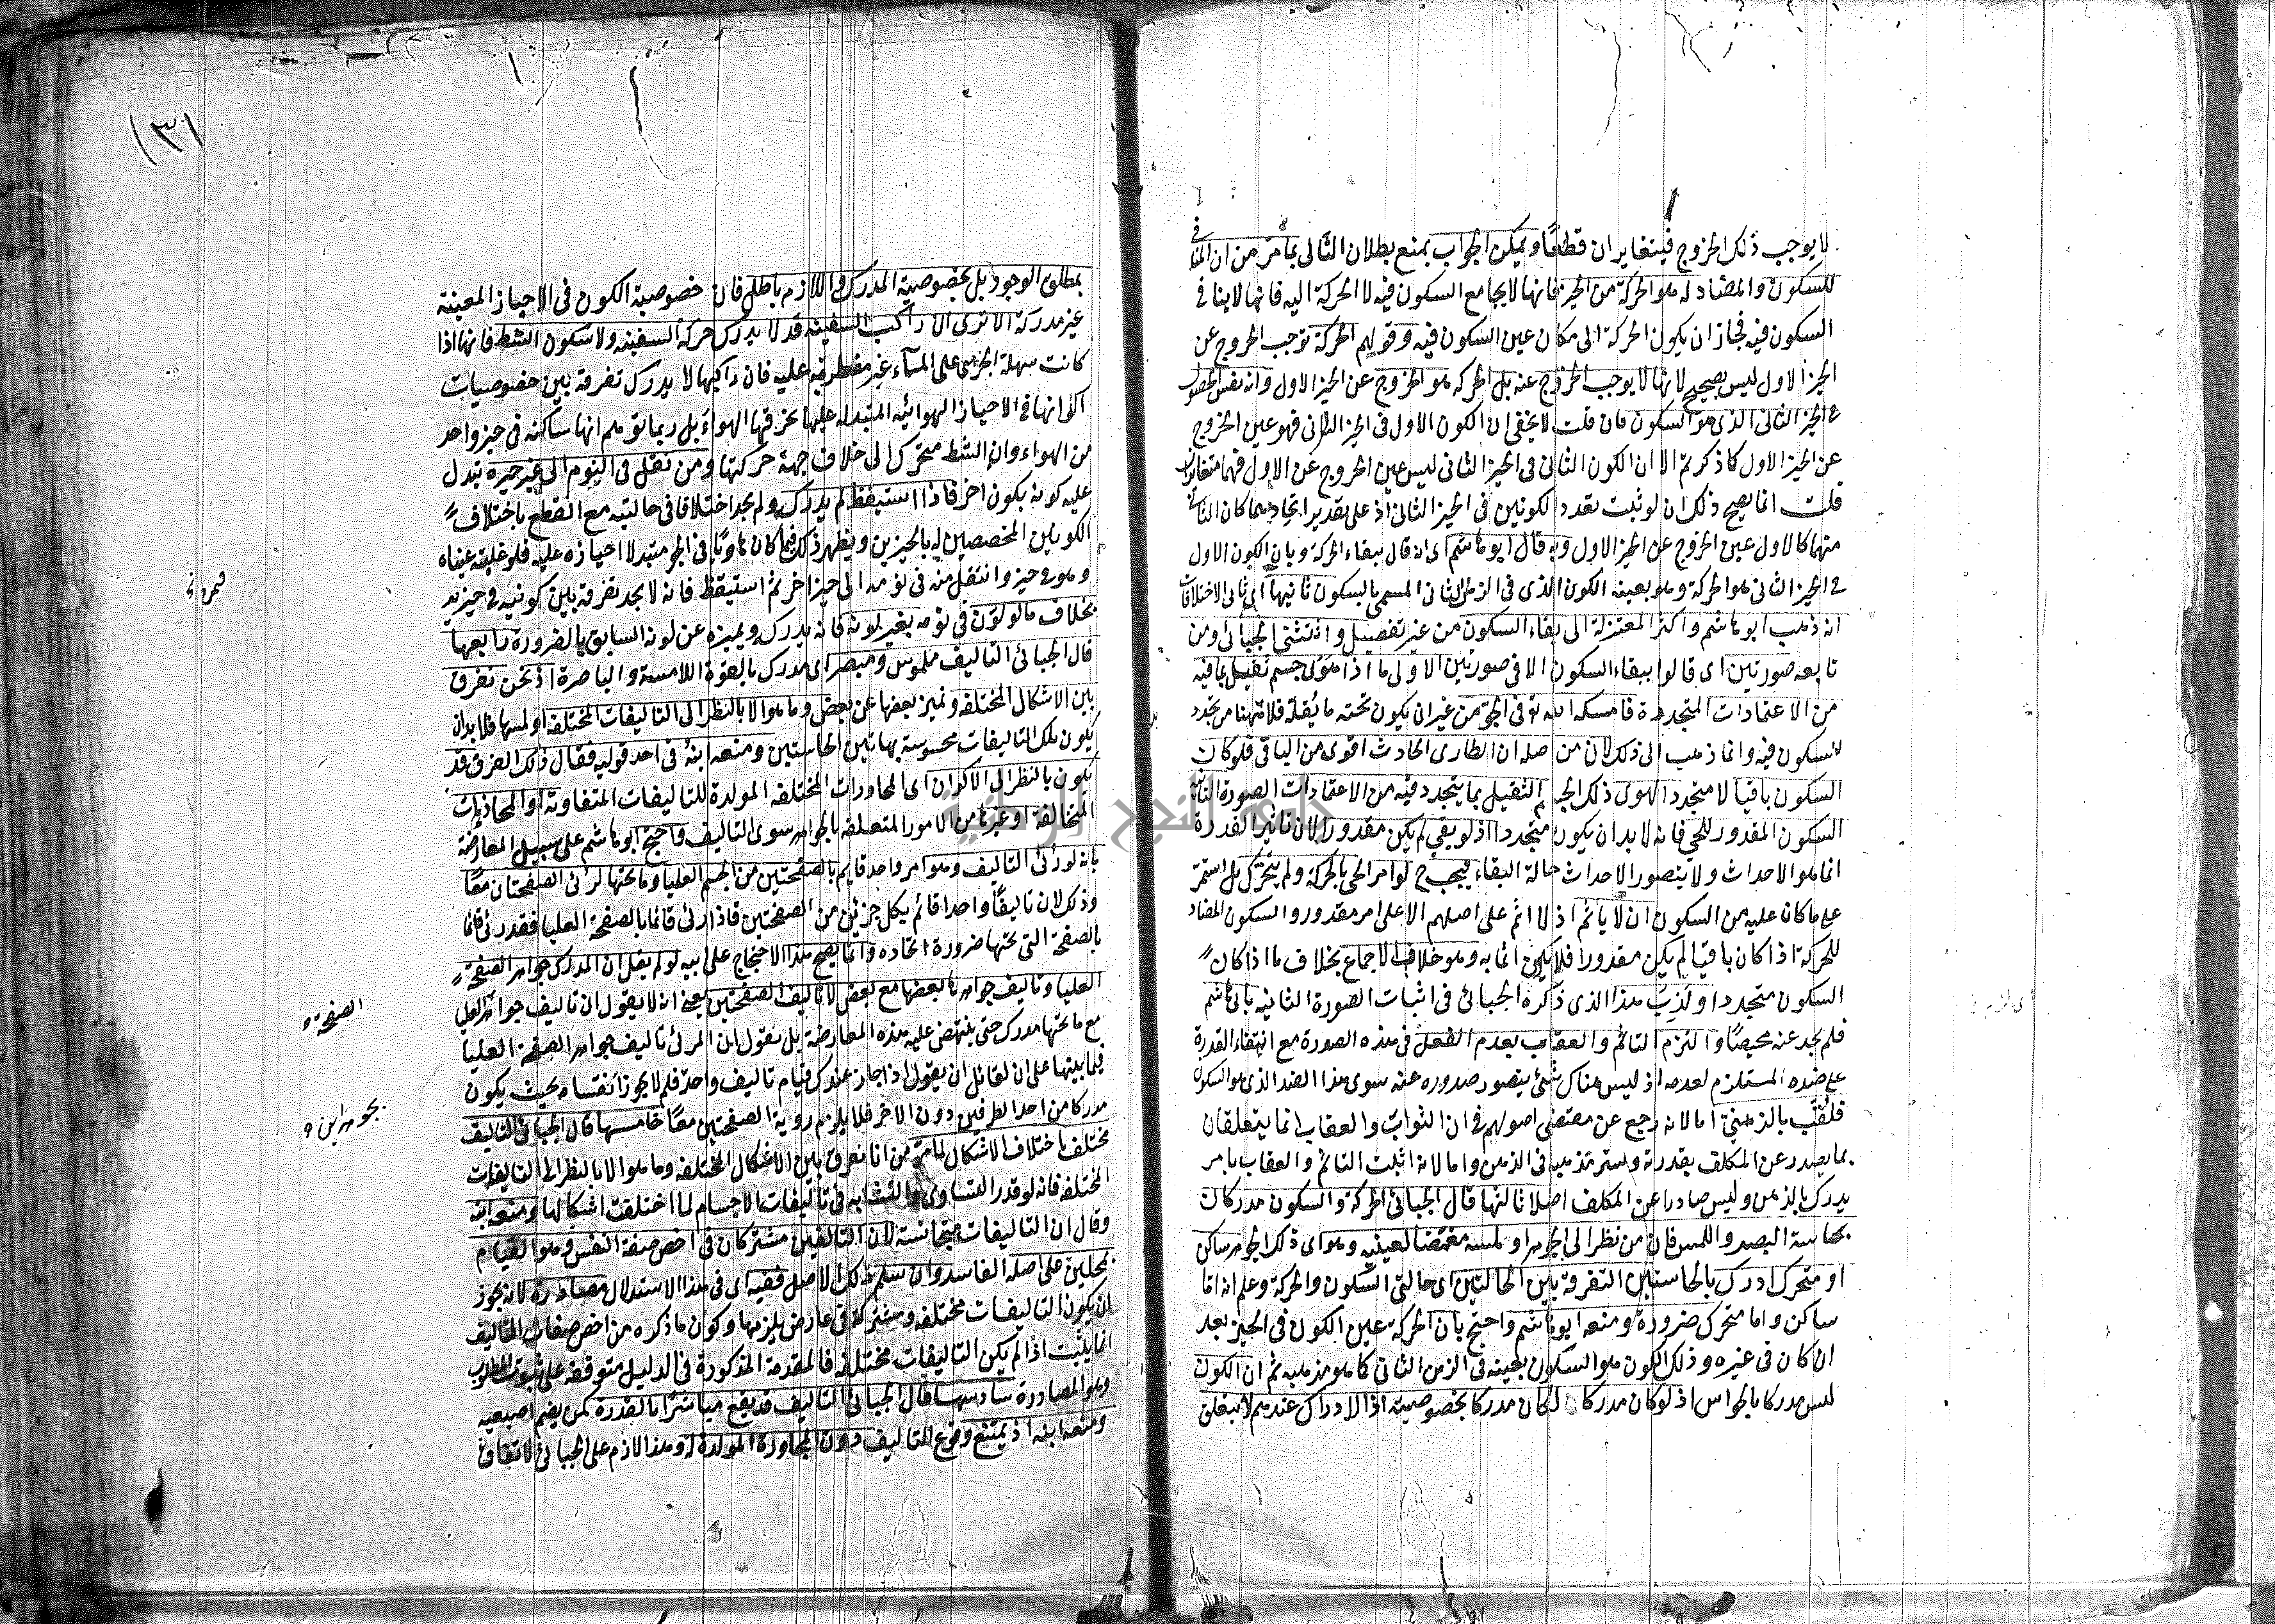 لا يوجب ذلك الخروج فيتغايران قطعًا ويمكن الجواب بمنع بطلان التالى بما مر من ان المنافى
للسكون والمضاد له هو الحركة من الحيز فانها لا يجامع السكون فيه لا الحركة اليه فانها لا ينافى
السكون فيه فجاز ان يكون الحركة الى مكان عين السكون فيه وقولهم الحركة توجب الخروج عن
الحيز الاول ليس بصحيح لانها لا يوجب الخروج عنه بل الحركة هو الخروج عن الحيز الاول وانه نفس الحصول
فى الحيز الثانى الذى هو السكون فان قلت لا يخفى ان الكون الاول فى الحيز الثانى فهو عين الخروج
عن الحيز الاول كما ذكرتم الا ان الكون الثانى فى الحيز الثانى ليس عين الخروج عن الاول فهما متغايران
قلت انما يصح ذلك ان لو ثبت تعدد الكونين فى الحيز الثانى اذ على تقدير اتحادهما كان الثانى
منهما كالاول عين الخروج عن الحيز الاول وبه قال ابو هاشم اى انه قال ببقاء الحركة وبان الكون الاول
فى الحيز الثانى هو الحركة وهو بعينه الكون الذى فى الزمان الثانى المسمى بالسكون ثانيها اى ثانى الاختلافات
انه ذهب ابو هاشم واكثر المعتزلة الى بقاء السكون من غير تفصيل واستثنى الجبائى ومن
تابعه صورتين اى قالوا ببقاء السكون الا فى صورتين الاولى ما اذا هوى جسم ثقيل بما فيه
من الاعتمادات المتجددة فامسكه الله تع فى الجو من غير ان يكون تحته ما يُقلّه فلا بد هنا من تجدد
السكون فيه وانما ذهب الى ذلك لان من اصله ان الطارى الحادث اقوى من الباقى فلو كان
السكون باقيا لا متجددا لهوى ذلك الجسم الثقيل بما يتجدد فيه من الاعتمادات الصورة الثانية
السكون المقدور للحى فانه لا بد ان يكون متجددا اذ لو بقى لم يكن مقدورا لان تاثير القدرة
انما هو الاحداث ولا يتصور الاحداث حالة البقاء فيجب ح لو امر الحى بالحركة ولم يتحرك بل استمر
على ما كان عليه من السكون ان لا ياثم اذ لا اثم على اصلهم الا على امر مقدور والسكون المضاد
للحركة اذا كان باقيا لم يكن مقدورا فلا يكون اثما به وهو خلاف الاجماع بخلاف ما اذا كان
السكون متجددا ولزب هذا الذى ذكره الجبائى فى اثبات الصورة الثانيه بابى هاشم
فلم يجد عنه محيصًا والتزم التاثم والعقاب بعدم الفعل فى هذه الصورة مع انتفاء القدرة
على ضده المستلزم لعدمه اذ ليس هناك شئ يتصور صدوره عنه سوى هذا الضد الذى هو السكون
فلُقّب بالذهنى اما لانه رجع عن مقتضى اصولهم فى ان الثواب والعقاب انما يتعلقان
بما يصدر عن المكلف بقدرته وستر مذهبه فى الذهن واما لانه اثبت التاثم والعقاب بامر
يدرك بالذهن وليس صادرا عن المكلف اصلا ثالثها قال الجبائى الحركة والسكون مدركان
بحاسة البصر واللمس فان من نظر الى الجوهر او لمسه مغمضا لعينيه وهو اى ذلك الجوهر ساكن
او متحرك ادرك بالحاستين التفرقة بين الحالتين اى حالتى السكون والحركة وعلم انه اما
ساكن واما متحرك ضرورة ومنعه ابو هاشم واحتج بان الحركة عين الكون فى الحيز بعد
ان كان فى غيره وذلك الكون هو السكون بعينه فى الزمن الثانى كما هو مذهبه ثم ان الكون
ليس مدركا بالحواس اذ لو كان مدركا لكان مدركا بخصوصيته اذ الادراك عندهم لا يتعلق
(٣١
بمطلق الوجود بل بخصوصية المدرك واللازم باطل فان خصوصية الكون فى الاحياز المعينة
غير مدركة الا ترى ان راكب السفينة قد لا يدرك حركة السفينه ولا سكون الشط فانها اذا
كانت سهلة الجرى على الماء غير مضطربة عليه فان راكبها لا يدرك تفرقة بين خصوصيات
اكوانها فى الاحياز الهوائيه المتبدلة عليها بخرقها الهواء بل ربما توهم انها ساكنة فى حيز واحد
من الهواء وان الشط متحرك الى خلاف جهة حركتها ومن نقل فى النوم الى غير حيزه تبدل
عليه كونه بكون اخر فاذا استيقظ لم يدرك ولم يجد اختلافا فى حالتيه مع القطع باختلاف
الكونين المخصصين له بالحيزين ويظهر ذلك فيما كان هاويًا فى الجو متبدلا احيازه عليه فلو غلبته عيناه
وهو فى حيز وانتقل منه فى نومه الى حيز اخر ثم استيقظ فانه لا يجد تفرقة بين كونيه فى حيزيه
بخلاف ما لو لوّن فى نومه بغير لونه فانه يدرك ويميزه عن لونه السابق بالضرورة رابعها
قال الجبائى التاليف ملموس ومبصر اى مدرك بالقوة اللامسة والباصرة اذ نحن نفرق
بين الاشكال المختلفه ونميز بعضها عن بعض وما هو الا بالنظر الى التاليفات المختلفه او لمسها فلا بد ان
يكون تلك التاليفات محسوسة بهاتين الحاستين ومنعه ابنه فى احد قوليه فقال ذلك الفرق قد
يكون بالنظر الى الاكوان اى المجاورات المختلفه المولدة للتاليفات المتفاوته او المحاذيات
المتخالفة او غيرها من الامور المتعلقه بالجواهر سوى التاليف واحتج ابو هاشم على سبيل المعارضة
بانه لو رئى التاليف وهو امر واحد قايم بالصفحتين من الجسم العليا وما تحتها لرئى الصفحتان معًا
وذلك لان تاليفًا واحدا قائم بكل جزئين من الصفحتين فاذا رئى قائما بالصفحة العليا فقد رئى قائما
بالصفحة التى تحتها ضرورة اتحاده وانما يصح هذا الاحتجاج على ابيه لو لم يقل ان المدرك جواهر الصفحة
العليا وتاليف جواهرها بعضها مع بعض لا تاليف الصفحتين يعنى انه لا يقول ان تاليف جواهر العليا
مع ما تحتها مدرك حتى ينتهض عليه هذه المعارضة بل يقول ان المرئى تاليف جواهر الصفحة العليا
فيما بينها على ان لقائل ان يقول اذا جاز عندك قيام تاليف واحد فلم لا يجوز انقسامه بحيث يكون
مدركا من احد الطرفين دون الاخر فلا يلزم رؤية الصفحتين معًا خامسها قال الجبائى التاليف
مختلف باختلاف الاشكال لما مر من انا نفرق بين الاشكال المختلفه وما هو الا بالنظر الى التاليفات
المختلفه فانه لو قدر التساوى والتشابه فى تاليفات الاجسام لما اختلفت اشكالها ومنعه ابنه
وقال ان التاليفات متجانسة لان التاليفين مشتركان فى اخص صفة النفس وهو القيام
بمحلين على اصله الفاسد وان سلم ذلك الاصل ففيه اى فى هذا الاستدلال مصادرة لانه يجوز
ان يكون التاليفات مختلفه ومشتركة فى عارض يلزمها وكون ما ذكره من اخص صفات التاليف
انما يثبت اذا لم يكن التاليفات مختلفه فالمقدمة المذكورة فى الدليل متوقفه على ثبوت المطلوب
وهو المصادرة سادسها قال الجبائى التاليف قد يقع مباشرًا بالقدرة كمن يضم اصبعيه
ومنعه ابنه اذ يمتنع وقوع التاليف دون المجاورة المولدة له وهذا لازم على الجبائى لاتفاق
الصفحة
بجوهرين